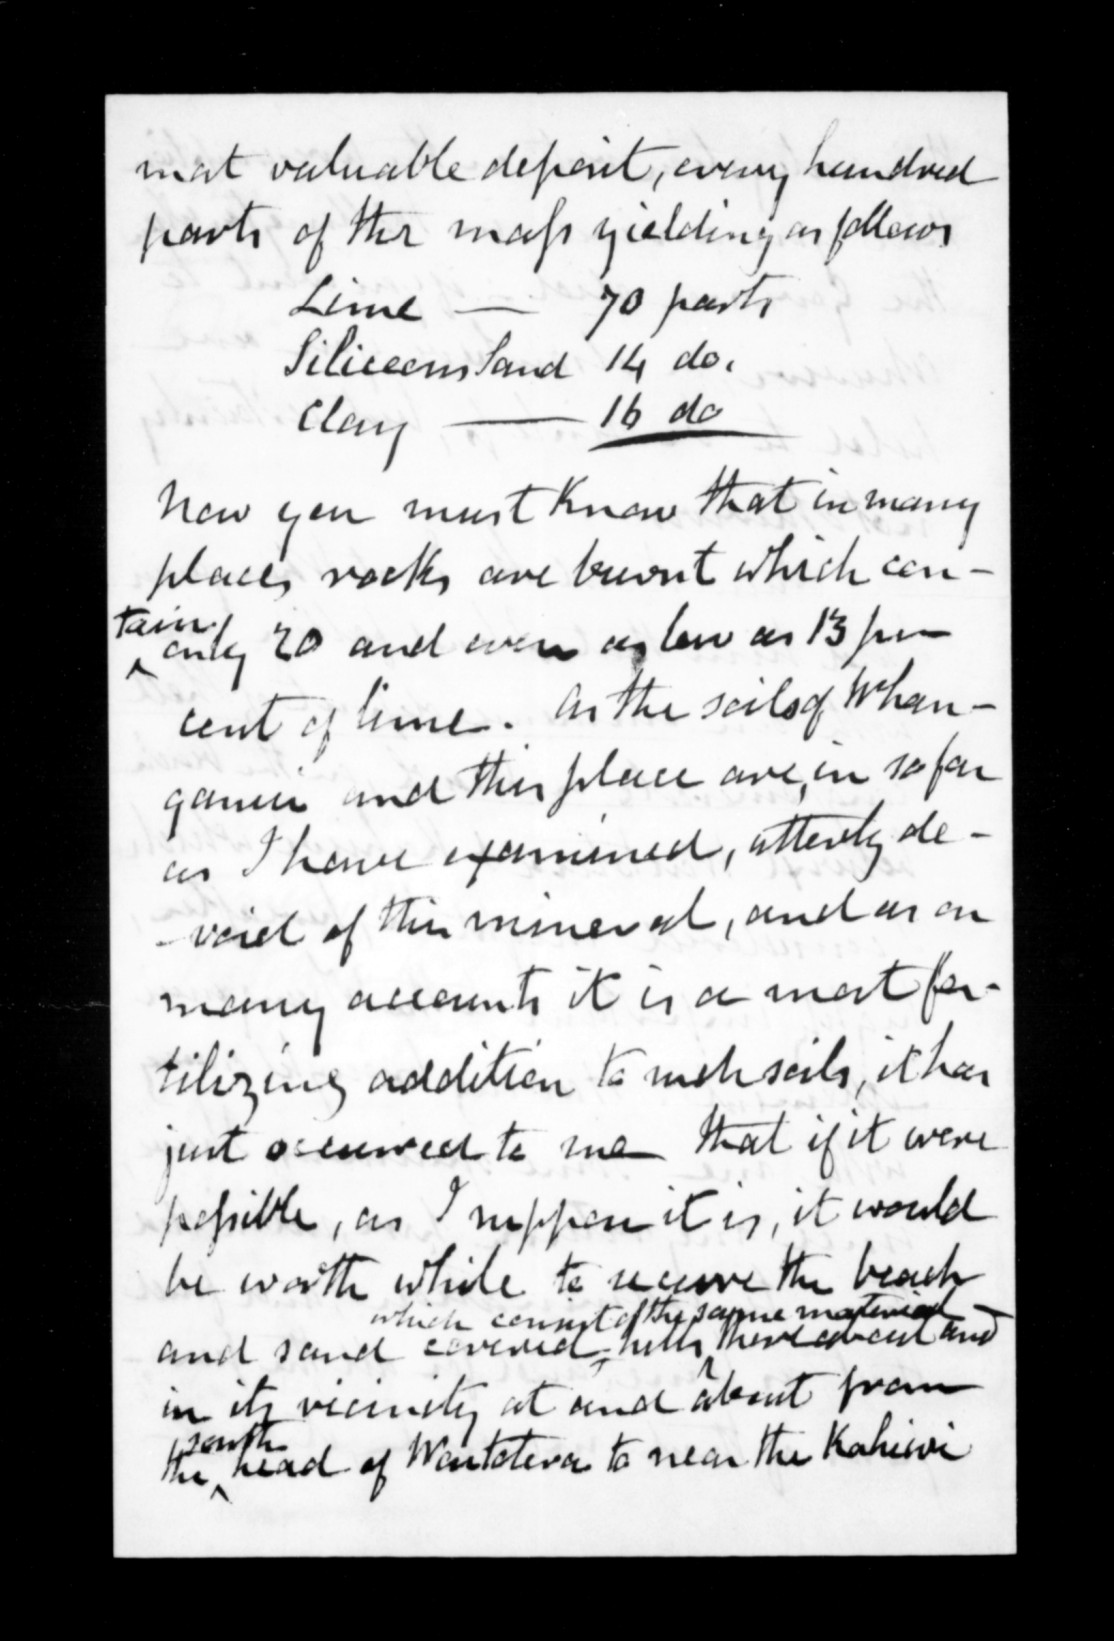 most valuable deposit, every hundred
parts of the mass yielding as follows
Lime — 70 parts
Siliceous Sand 14 do.
Clay — 16 do
Now you must know that in many
places rocks are burnt which con-
tain only 20 and even as low as 13 per
cent of lime. As the soils of Whan-
ganui and this place are, in so far
as I have examined, utterly de-
-void of this mineral, and as on
many accounts it is a most fer-
tilizing addition to such soils, it has
just occurred to me that if it were
possible, as I suppose it is, it would
be worth while to secure the beach
which consist of the same material
and sand covered hills thereabout and
in its vicinity at and about from
the south head of to near the